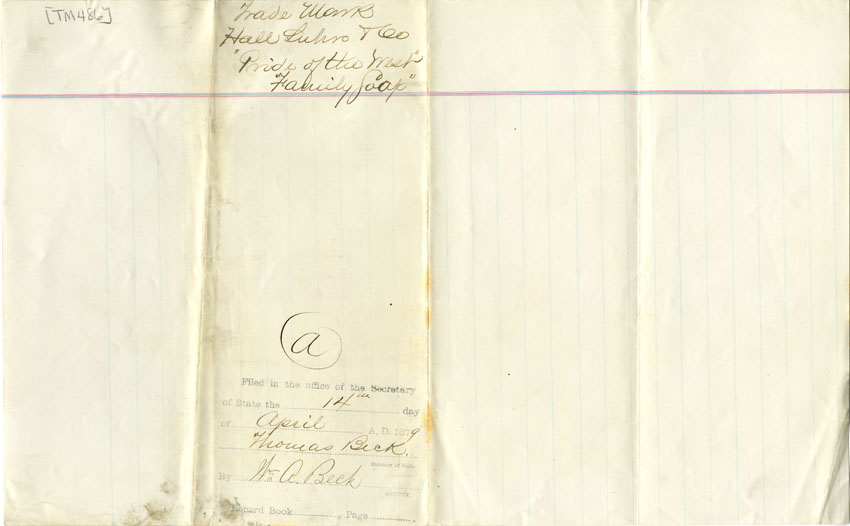 [TM486]
Trade Mark
Hall Luhrs & Co
"Pride of the West"
"Family Soap"
a
Filed in the office of the Secretary
of State the 14th day
of April A. D. 1879
Thomas Beck.
Secretary of State.
By Wm A. Beck
DEPUTY.
Record Book , Page